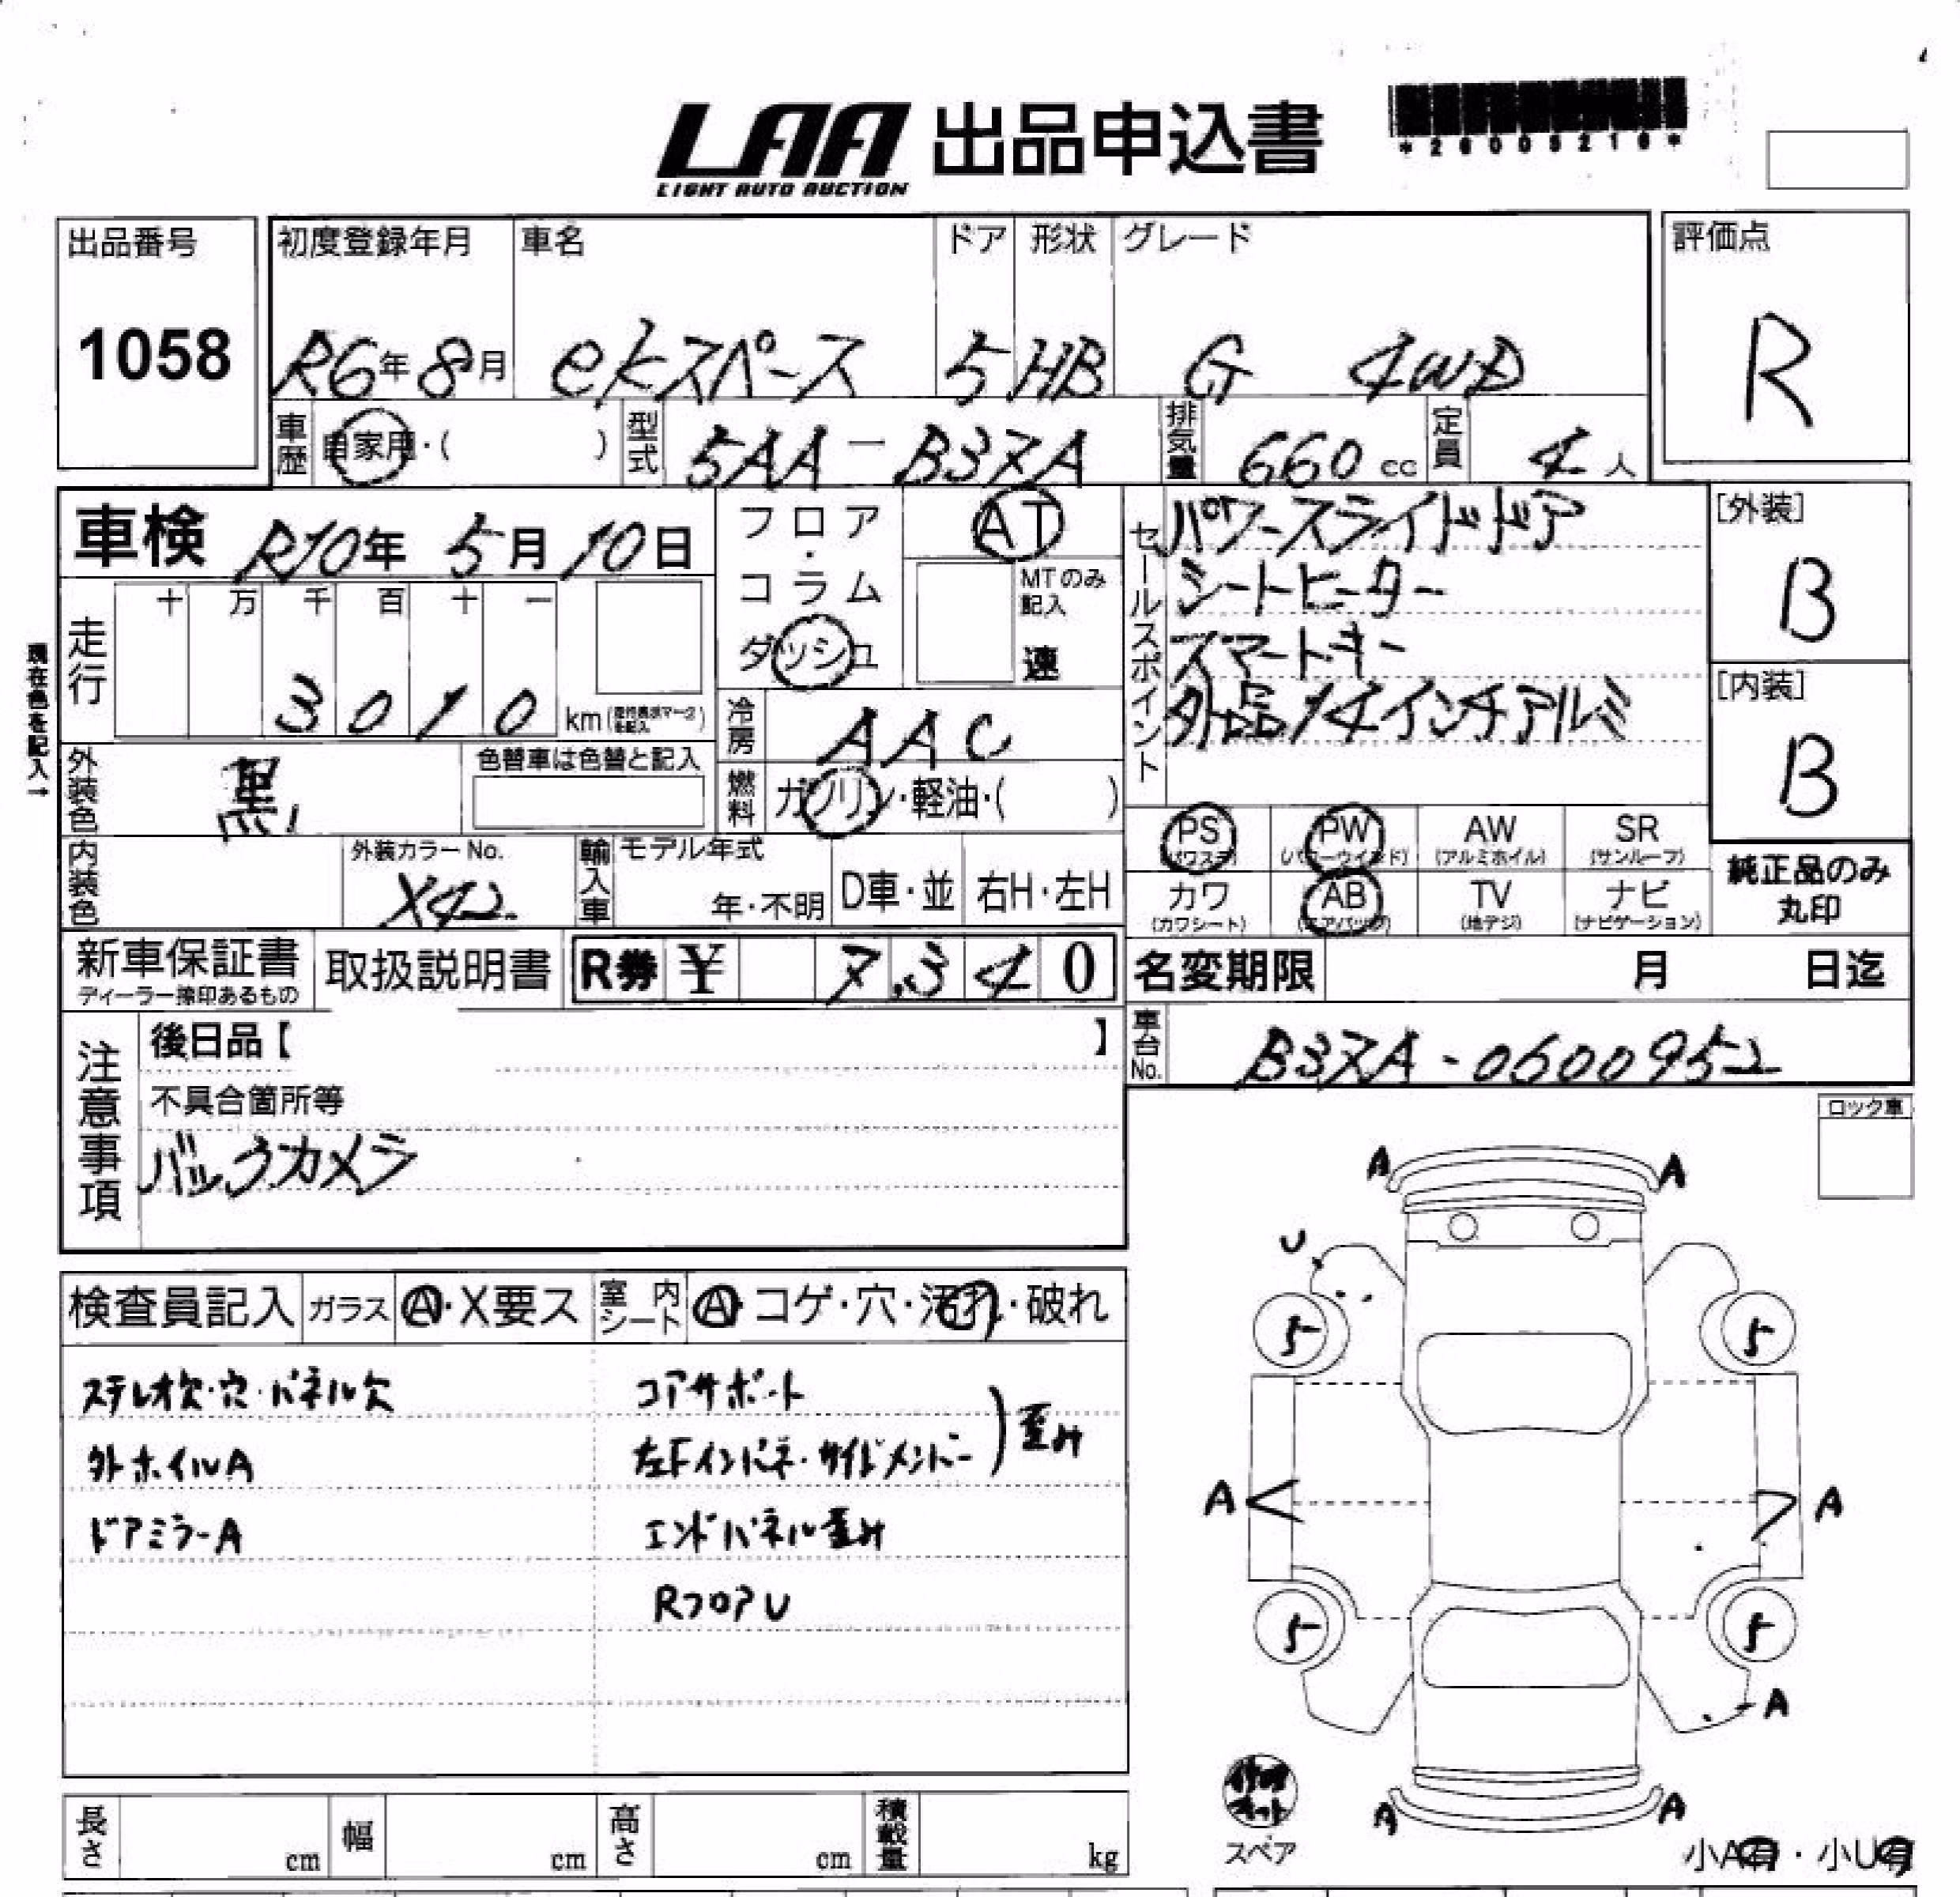 LAA 出品申込書
LIGHT AUTO AUCTION
*26005216*
出品番号 初度登録年月 車名 ドア 形状 グレード 評価点
1058 R6年8月 ekスペース 5 HB G 4WD R
車歴 自家用・( ) 型式 5AA-B37A 排気量 660cc 定員 4人
車検 R10年 5月10日 フロア・コラム ダッシュ AT MTのみ記入 速
セールスポイント パワースライドドア
シートヒーター
スマートキー
外品14インチアルミ
[外装]
B
[内装]
B
現在色を記入→
走行 十 万 千 百 十 一
3 0 1 0 km
冷房 AAC
外装色 黒 色替車は色替と記入
燃料 ガソリン・軽油・( )
PS (パワステ) PW (パワーウインド) AW (アルミホイル) SR (サンルーフ)
内装色 外装カラーNo. X42 輸入車 モデル年式 年・不明 D車・並 右H・左H
カワ (カワシート) AB (エアバッグ) TV (地デジ) ナビ (ナビゲーション)
純正品のみ丸印
新車保証書 ディーラー捺印あるもの 取扱説明書 R券 ¥ 7,340
名変期限 月 日迄
注意事項 後日品【 】
車台No. B37A-0600952
不具合箇所等
バックカメラ
ロック車
検査員記入 ガラス A・X要ス 室内シート A・コゲ・穴・汚れ・破れ
ステレオ欠・穴・パネル欠 コアサポート
外ホイルA 左Fインパネ・サイドメンバー ) 歪み
ドアミラーA エンドパネル歪み
RフロアU
A A
U
5 5
A A
5 5
A
A A
スペア
小A有・小U有
長さ cm 幅 cm 高さ cm 積載量 kg